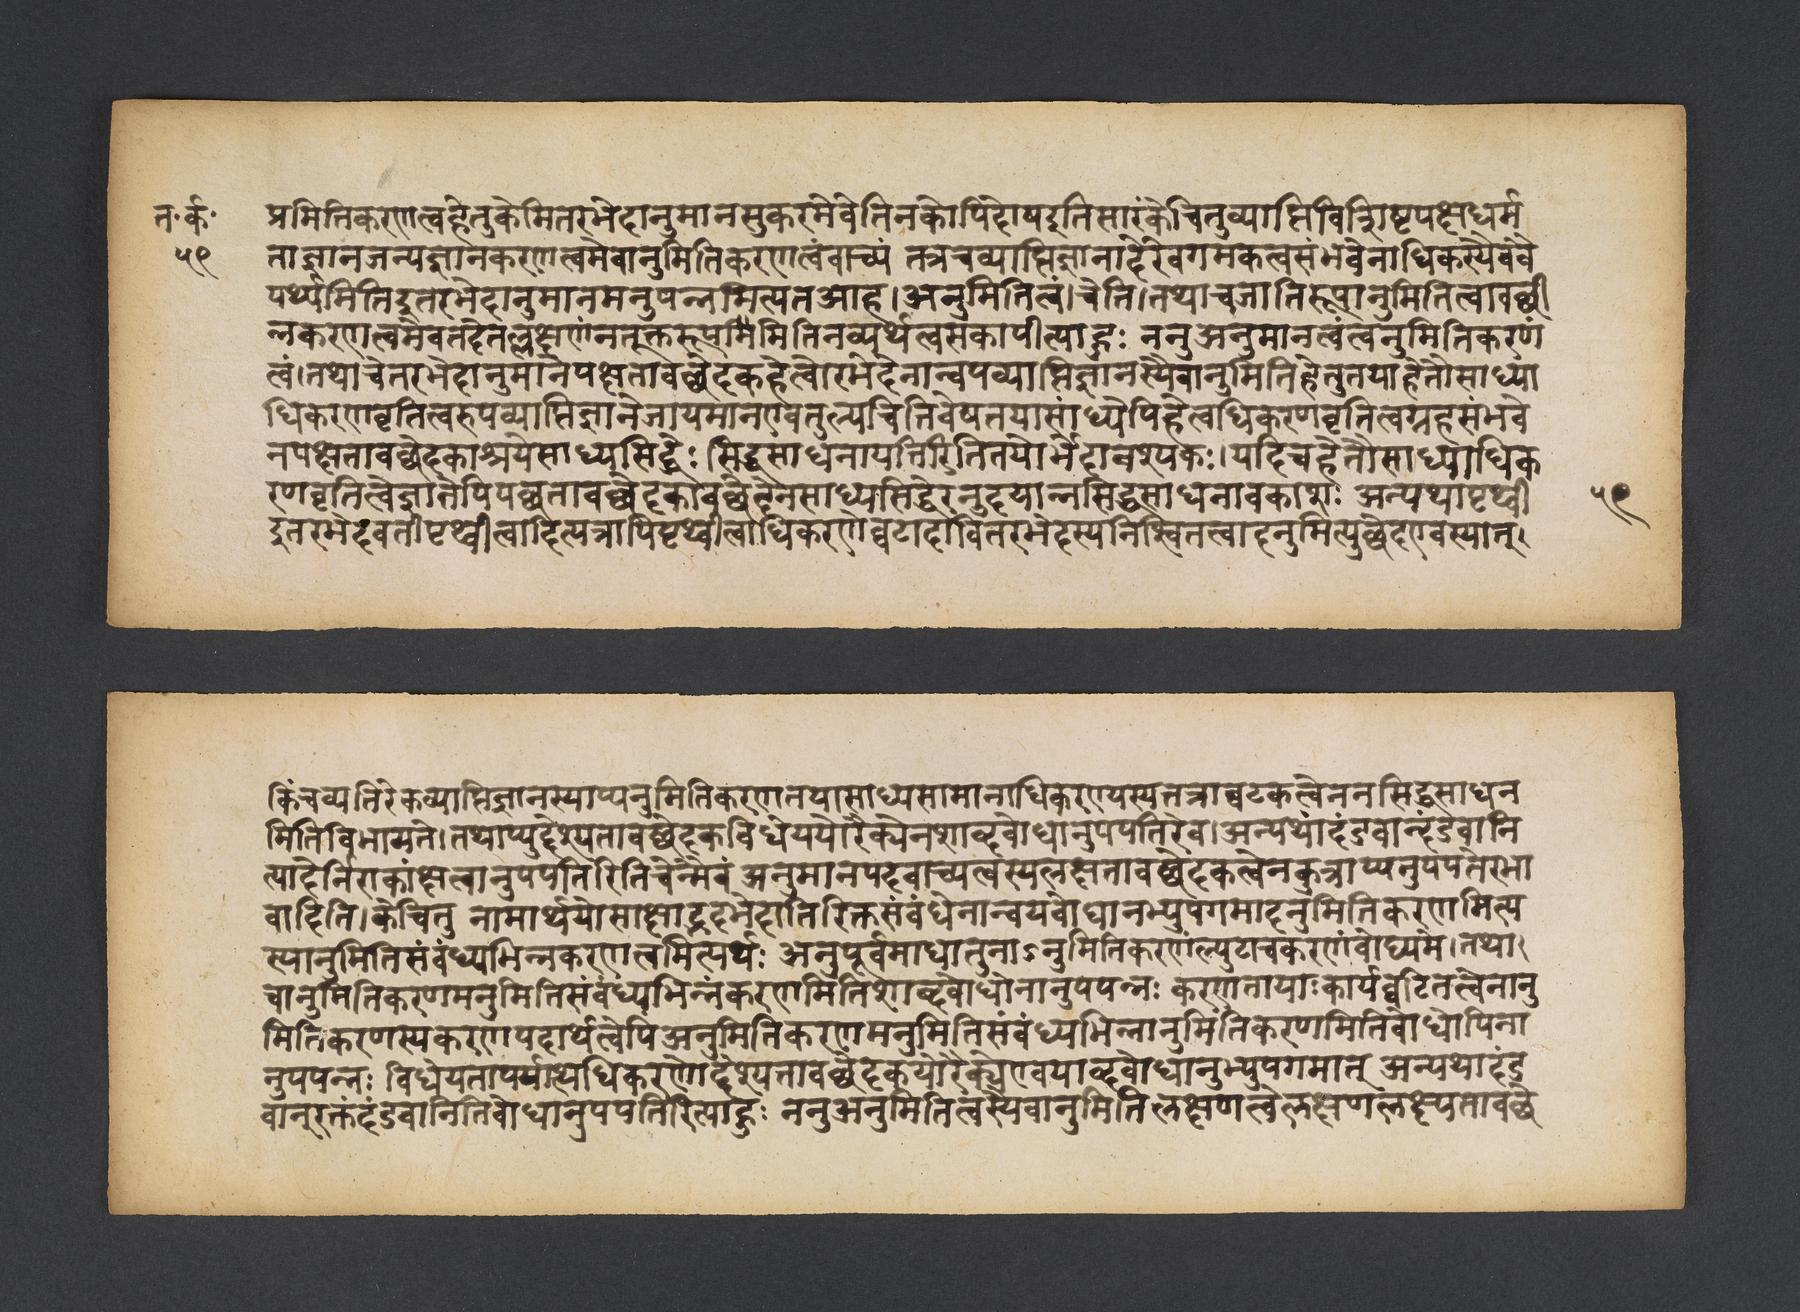 त॰ क॰ प्रमितिकरणत्वहेतुकेमितरभेदानुमानसुकरमेवेतिनकोपिदोषइतिसारंकेचित्तुव्याप्तिविशिष्टपक्षधर्म
५९ ताज्ञानजन्यज्ञानकरणत्वमेवानुमितिकरणत्वंवाच्यं तत्रचव्याप्तिज्ञानादेरेवगमकत्वसंभवेनाधिकस्यैववै
यर्थ्यमितिइतरभेदानुमानमनुपन्नमित्यतआह।अनुमितित्वं।चेति।तथाचजातिरूपानुमितित्वावछी
न्नकरणत्वमेवतदेतल्लक्षणंनतूक्तरूपमिमितिनव्यर्थत्वसकापीत्याहुः ननुअनुमानत्वंत्वनुमितिकरणं
त्वं।तथाचेतरभेदानुमानेपक्षतावछेदकहेत्वोरभेदेनान्वपव्याप्तिज्ञानस्यैवानुमितिहेतुतयाहेतौसाध्या
धिकरणवृतित्वरुपव्याप्तिज्ञानेजायमानएवतुल्यचित्तिवेषतयासाध्येपिहेत्वधिकरणवृतित्वग्रहसंभवे
नपक्षतावछेदकाश्रयेसाध्यसिद्धेः सिद्धसाधनापत्तिरितितयोर्भेदावश्पकः।यदिचहेतौसाध्याधिक
रणवृतित्वेज्ञातेपिपक्षतावछेदकावछेदेनसाध्यसिद्धेरनुदयान्नसिद्धसाधनावकाशः अन्यथापृथ्वी ५९
इतरभेदवतीपृथ्वीत्वादित्यत्रापिपृथ्वीत्वाधिकरणेघटादावितरभेदस्यनिश्चितत्वादनुमित्युछेदएवस्यात्।
किंचव्यतिरेकव्याप्तिज्ञानस्याप्यनुमितिकरणतयासाध्यसामानाधिकरणयस्यतत्राघटकत्वेननसिद्धसाधन
मितिविभाव्यते।तथाप्युद्देश्यतावछेदकविधेययोरैक्येनशाव्दवोधानुपपतिरेव।अन्यथादंडवान्दंडवानि
त्यादेर्निराकांक्षत्वानुपपतिरितिचेन्मैवं अनुमानपदवाच्यत्वस्यलक्षतावछेदकत्वेनकुत्राप्यनुपपतेरभा
वादिति।केचितु नामार्थयोसाक्षाद्भेदभेदातिरिक्तसंवंधेनान्वयवोधानभ्युपगमादनुमितिकरणमित्य
स्यानुमितिसंवंध्यभिन्नकरणत्वमित्यर्थः अनुपूर्वमाधातुनाऽनुमितिकरणंल्युटाचकरणंवोध्यमे।तथा।
चानुमितिकरणमनुमितिसंवंध्यभिन्नकरणमितिशाव्दवोधोनानुपपन्नः करणतायाःकार्यघटितत्वेनानु
मितिकरणस्यकरणपदार्थत्वेपिअनुमितिकरणमनुमितिसंवंध्यभिन्नानुमितिकरणमितिवोधोपिना
नुपपन्नः विधेयतापर्याप्त्यधिकरणोद्देश्यतावछेदकयोरैक्यएवयाव्दवोधानुभ्युपगमात् अन्यथादंड
वान्रक्तदंडवानितिवोधानुपपतिरित्याहुः ननुअनुमितित्वस्यैवानुमितिलक्षणत्वेलक्षणलक्ष्यतावछे